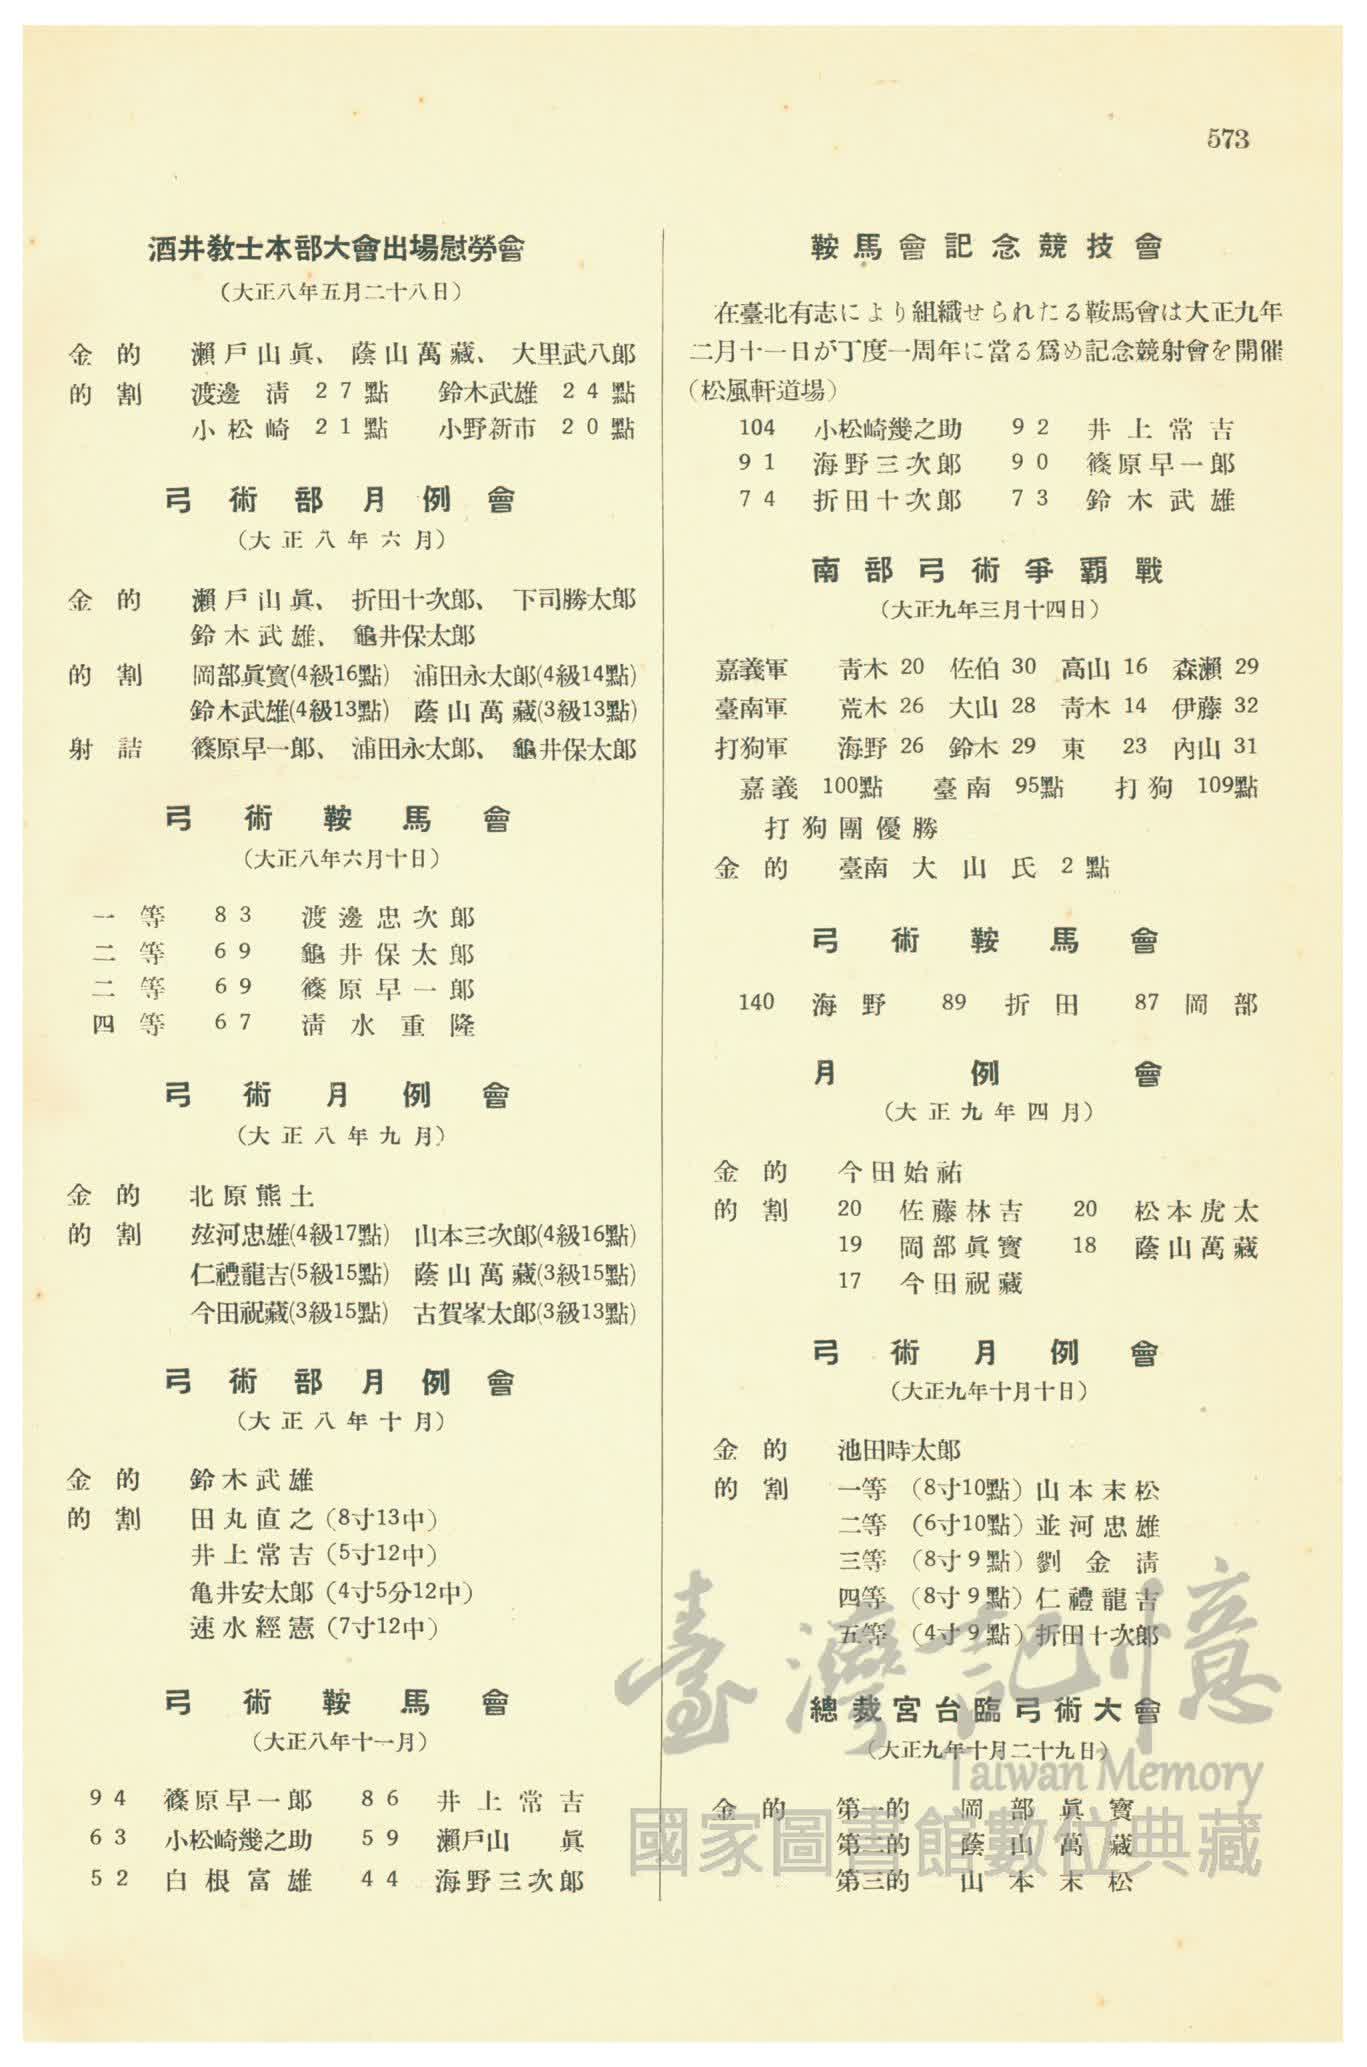 573
酒井教士本部大會出場慰勞會
(大正八年五月二十八日)
金的 瀨戶山眞、 蔭山萬藏、 大里武八郞
的割 渡邊淸 27點 鈴木武雄 24點
小松崎 21點 小野新市 20點
弓術部月例會
(大正八年六月)
金的 瀨戶山眞、 折田十次郞、 下司勝太郞
鈴木武雄、 龜井保太郞
的割 岡部眞寳(4級16點) 浦田永太郞(4級14點)
鈴木武雄(4級13點) 蔭山萬藏(3級13點)
射詰 篠原早一郞、 浦田永太郞、 龜井保太郞
弓術鞍馬會
(大正八年六月十日)
一等 83 渡邊忠次郞
二等 69 龜井保太郞
二等 69 篠原早一郞
四等 67 淸水重隆
弓術月例會
(大正八年九月)
金的 北原熊土
的割 玆河忠雄(4級17點) 山本三次郞(4級16點)
仁禮龍吉(5級15點) 蔭山萬藏(3級15點)
今田祝藏(3級15點) 古賀峯太郞(3級13點)
弓術部月例會
(大正八年十月)
金的 鈴木武雄
的割 田丸直之(8寸13中)
井上常吉(5寸12中)
亀井安太郞(4寸5分12中)
速水經憲(7寸12中)
弓術鞍馬會
(大正八年十一月)
94 篠原早一郞 86 井上常吉
63 小松崎幾之助 59 瀨戶山眞
52 白根富雄 44 海野三次郞
鞍馬會記念競技會
在臺北有志により組織せられたる鞍馬會は大正九年
二月十一日が丁度一周年に當る爲め記念競射會を開催
(松風軒道場)
104 小松崎幾之助 92 井上常吉
91 海野三次郞 90 篠原早一郞
74 折田十次郞 73 鈴木武雄
南部弓術爭覇戰
(大正九年三月十四日)
嘉義軍 靑木 20 佐伯 30 高山 16 森瀨 29
臺南軍 荒木 26 大山 28 靑木 14 伊藤 32
打狗軍 海野 26 鈴木 29 東 23 內山 31
嘉義 100點 臺南 95點 打狗 109點
打狗團優勝
金的 臺南 大山氏 2點
弓術鞍馬會
140 海野 89 折田 87 岡部
月例會
(大正九年四月)
金的 今田始祐
的割 20 佐藤林吉 20 松本虎太
19 岡部眞寳 18 蔭山萬藏
17 今田祝藏
弓術月例會
(大正九年十月十日)
金的 池田時太郞
的割 一等 (8寸10點) 山本末松
二等 (6寸10點) 並河忠雄
三等 (8寸9點) 劉金淸
四等 (8寸9點) 仁禮龍吉
五等 (4寸9點) 折田十次郞
總裁宮台臨弓術大會
(大正九年十月二十九日)
金的 第一的 岡部眞寳
第二的 蔭山萬藏
第三的 山本末松
臺灣記憶
Taiwan Memory
國家圖書館數位典藏